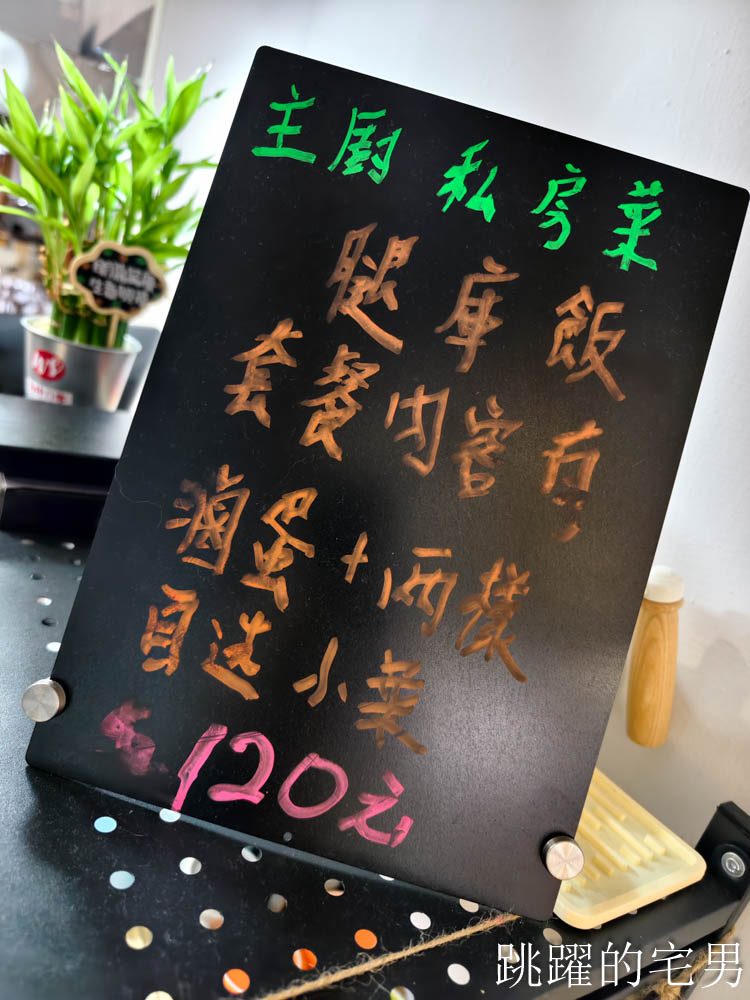 主廚 私房菜
腿庫飯
套餐內容有
滷蛋+兩樣
自选小菜
$120元
跳躍的宅男